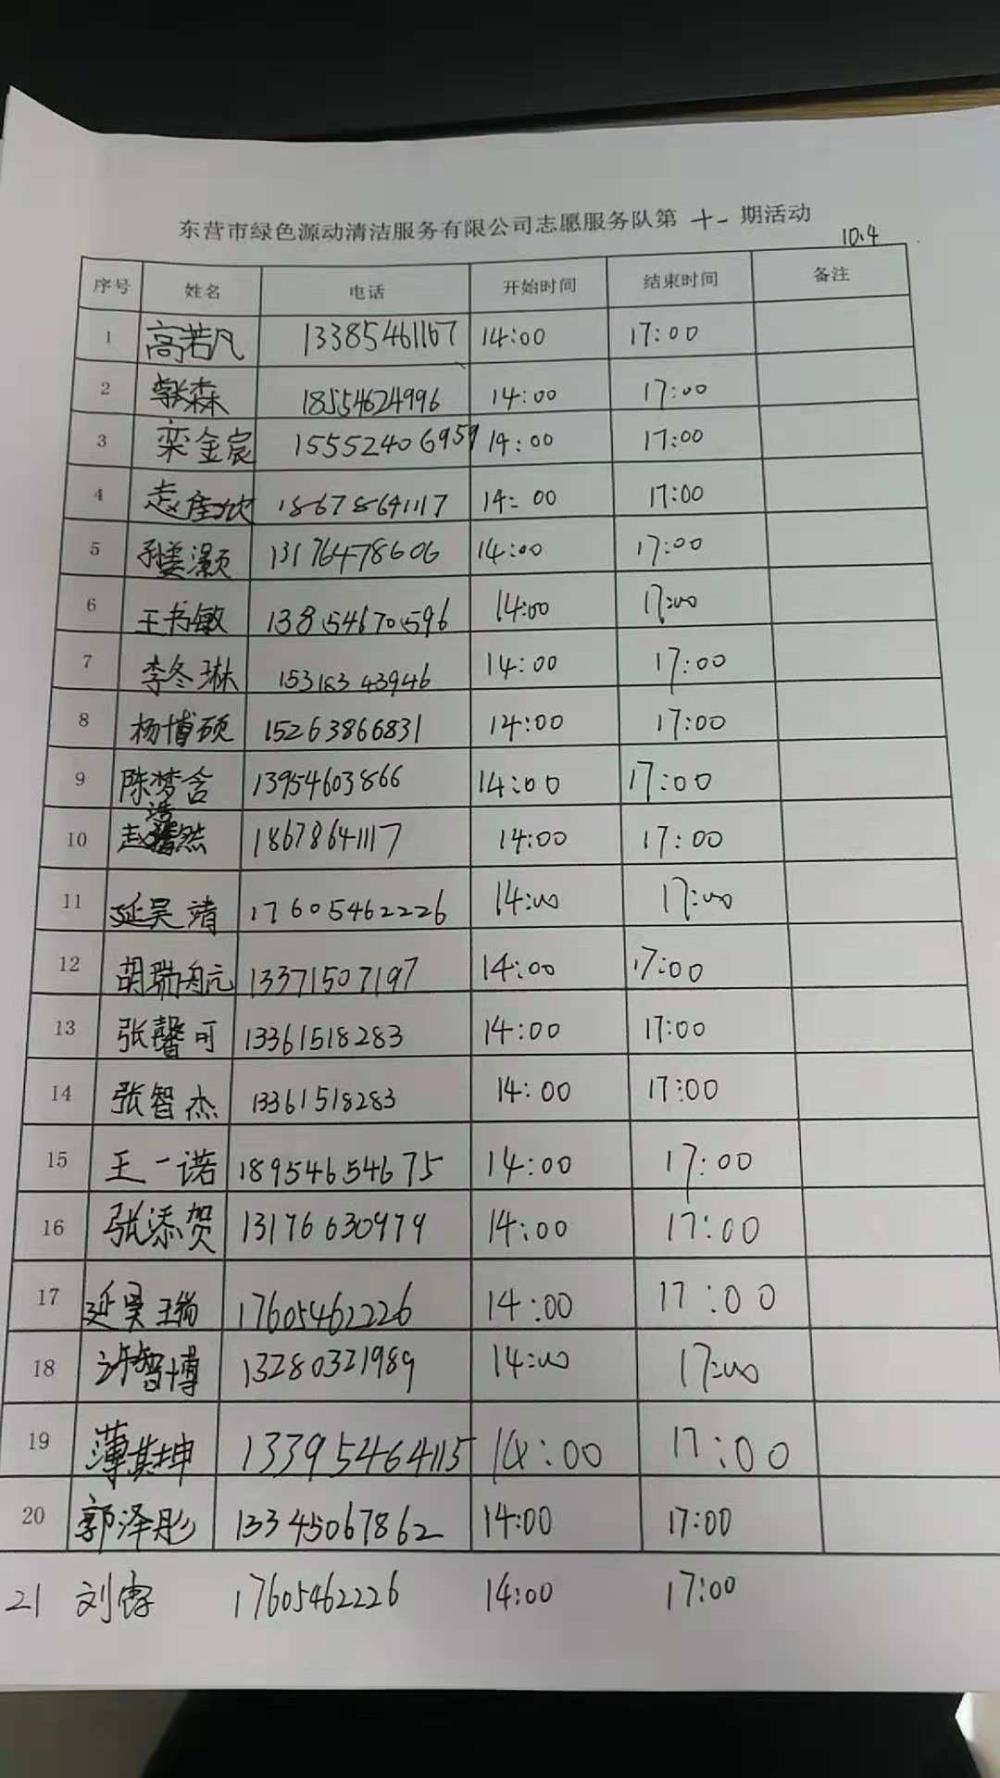 东营市绿色源动清洁服务有限公司志愿服务队第 十一 期活动
10.4
序号 姓名 电话 开始时间 结束时间 备注
1 高若凡 13385461167 14:00 17:00
2 张森 18554624996 14:00 17:00
3 栾金宸 15552406959 14:00 17:00
4 赵 18678641117 14:00 17:00
5 孙姜灏 13176478606 14:00 17:00
6 王书敏 13854670596 14:00 17:00
7 李冬琳 15318343946 14:00 17:00
8 杨博硕 15263866831 14:00 17:00
9 陈梦含 13954603866 14:00 17:00
10 赵浩然 18678641117 14:00 17:00
11 延昊靖 17605462226 14:00 17:00
12 胡瑞航 13371507197 14:00 17:00
13 张馨可 13361518283 14:00 17:00
14 张智杰 13361518283 14:00 17:00
15 王一诺 18954654675 14:00 17:00
16 张添贺 13176630979 14:00 17:00
17 延昊瑞 17605462226 14:00 17:00
18 许智博 13280321989 14:00 17:00
19 薄其坤 13395464115 14:00 17:00
20 郭泽彤 13345067862 14:00 17:00
21 刘 17605462226 14:00 17:00